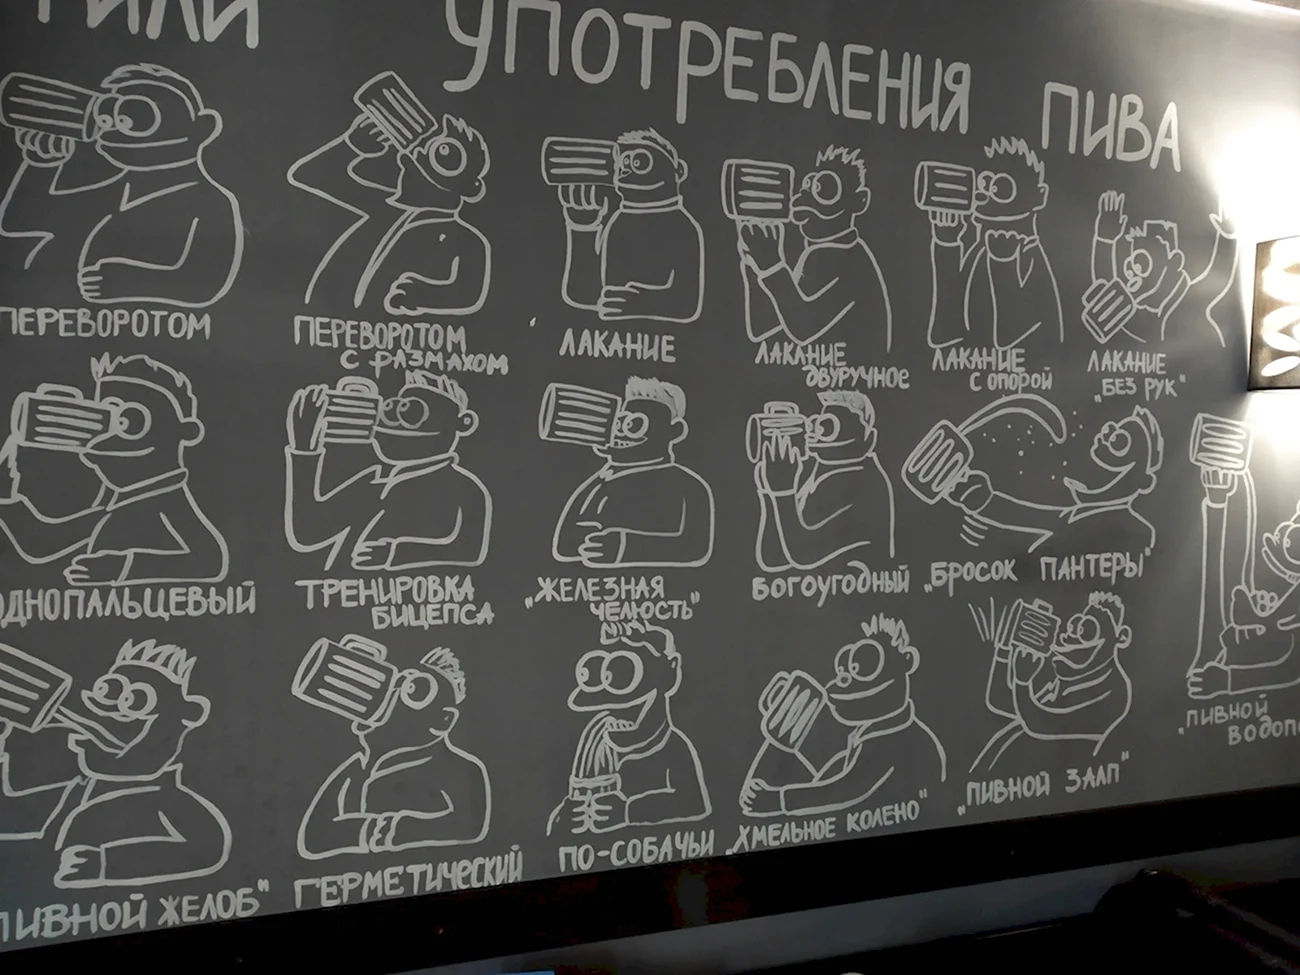 УПОТРЕБЛЕНИЯ ПИВА
ПЕРЕВОРОТОМ
ПЕРЕВОРОТОМ
С РАЗМАХОМ
ЛАКАНИЕ
ЛАКАНИЕ
ДВУРУЧНОЕ
ЛАКАНИЕ
С ОПОРОЙ
ЛАКАНИЕ
„БЕЗ РУК"
ОДНОПАЛЬЦЕВЫЙ
ТРЕНИРОВКА
БИЦЕПСА
„ЖЕЛЕЗНАЯ
ЧЕЛЮСТЬ"
БОГОУГОДНЫЙ
„БРОСОК ПАНТЕРЫ"
„ПИВНОЙ
ПИВНОЙ ЖЕЛОБ"
ГЕРМЕТИЧЕСКИЙ
ПО-СОБАЧЬИ
„ХМЕЛЬНОЕ КОЛЕНО"
„ПИВНОЙ ЗАЛП"